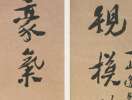 規模
豪氣